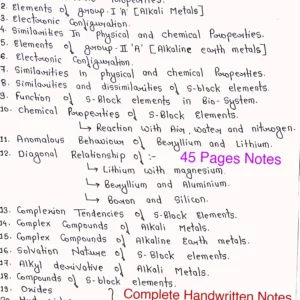 2. Elements of group-I 'A' [Alkali Metals]
3. Electronic Configuration.
4. Similarities In Physical and chemical Properties.
5. Elements of group-II 'A' [Alkaline earth metals]
6. Electronic Configuration.
7. Similarities in physical and chemical Properties.
8. Similarities and dissimilarities of s-block elements.
9. Function of S-Block elements in Bio-System.
10. Chemical Properties of S-Block Elements.
↳ Reaction with Air, water and nitrogen.
11. Anomalous Behaviour of Beryllium and Lithium.
12. Diagonal Relationship of :-
45 Pages Notes
↳ Lithium with magnesium.
↳ Beryllium and Aluminium.
↳ Boron and Silicon.
13. Complexion Tendencies of S-Block Elements.
14. Complex Compounds of Alkali Metals.
15. Complex Compounds of Alkaline Earth metals.
16. Solvation Nature of S-Block elements.
17. Alkyl derivative of Alkali Metals.
18. Compounds of S-block elements.
19. Oxides
Complete Handwritten Notes